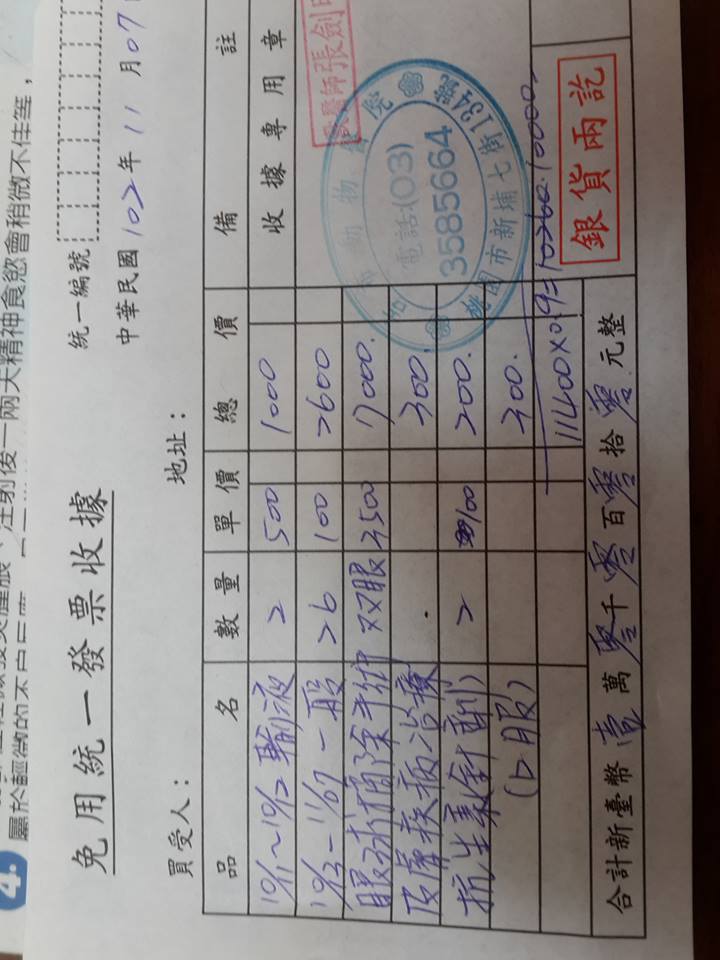 4. 屬於輕微的不良反應
注射後一兩天精神食慾會稍微不佳等，
免用統一發票收據
統一編號
中華民國 102 年 11 月 07
買受人：
地址：
品 名 數量 單價 總 價 備 註
10/11~10/12 輸液 2 500 1000 收據專用章
10/13-11/67 一般 26 100 2600
眼球摘除手術 双眼 3500 7000.
皮膚疾病治療 300.
抗生素針劑 2 100 200.
(口服) 300.
11400×0.9=10260. 10000.
合計新臺幣 壹 萬 零 千 零 百 零 拾 零 元整
獸醫師張劍
動物醫院
電話:(03)
3585664
桃園市新埔七街134號
銀貨兩訖